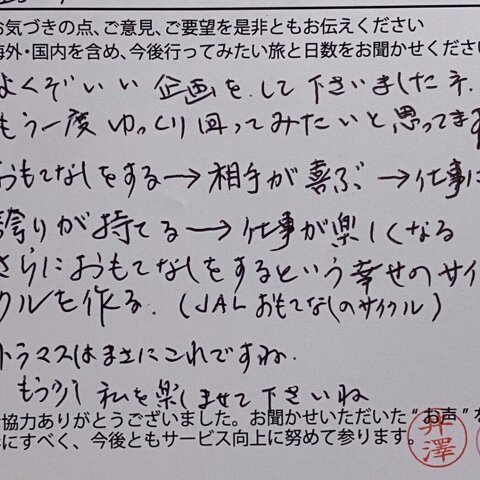 お気づきの点、ご意見、ご要望を是非ともお伝えください
海外・国内を含め、今後行ってみたい旅と日数をお聞かせくださ
よくぞいい企画をして下さいましたネ.
もう一度ゆっくり回ってみたいと思ってます
おもてなしをする→相手が喜ぶ→仕事に
誇りが持てる→仕事が楽しくなる
さらにおもてなしをするという幸せのサイ
クルを作る.(JALおもてなしのサイクル)
トラマスはまさにこれですね.
もう少し私を楽しませて下さいね
協力ありがとうございました。お聞かせいただいた“お声”を
にすべく、今後ともサービス向上に努めて参ります。
井澤